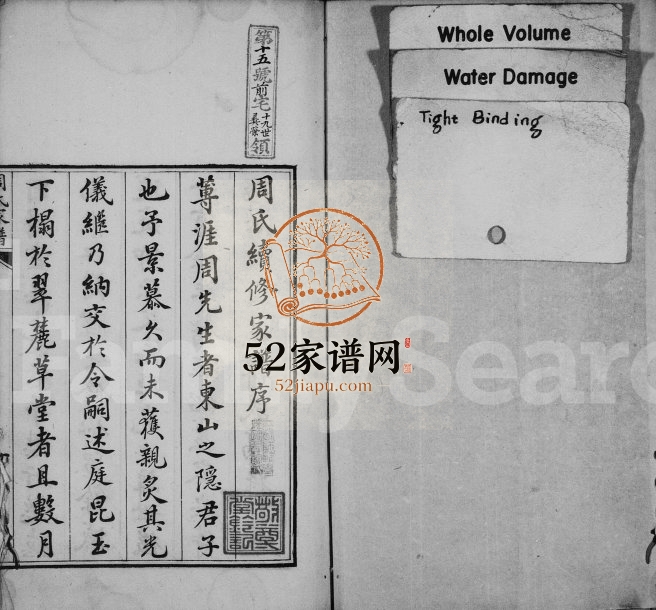 Whole Volume
Water Damage
Tight Binding
第十五號前宅十九世
領
周氏續修家譜序
蓴涯周先生者東山之隱君子
也予景慕久而未獲親炙其光
儀繼乃納交於令嗣述庭昆玉
下榻於翠麓草堂者且數月
周氏家譜
52家谱网
52jiapu.com
FamilySearch